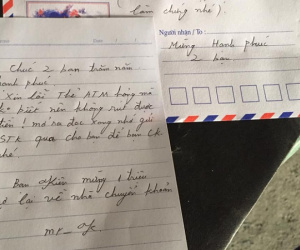 làm chung nhé )
Người nhận / To :
Mừng Hanh phuc
2 bạn
Chuc 2 bạn trăm năm
hanh phuc
Xin lỗi Thẻ ATM hong mà
ko biết nên không rut được
tiền ! mở ra đọc xong nhớ gửi
STK qua cho bạn để bạn CK
nhé
Bạn Kiên mừng 1 triệu
lại về nhà chuyển khoản
MK